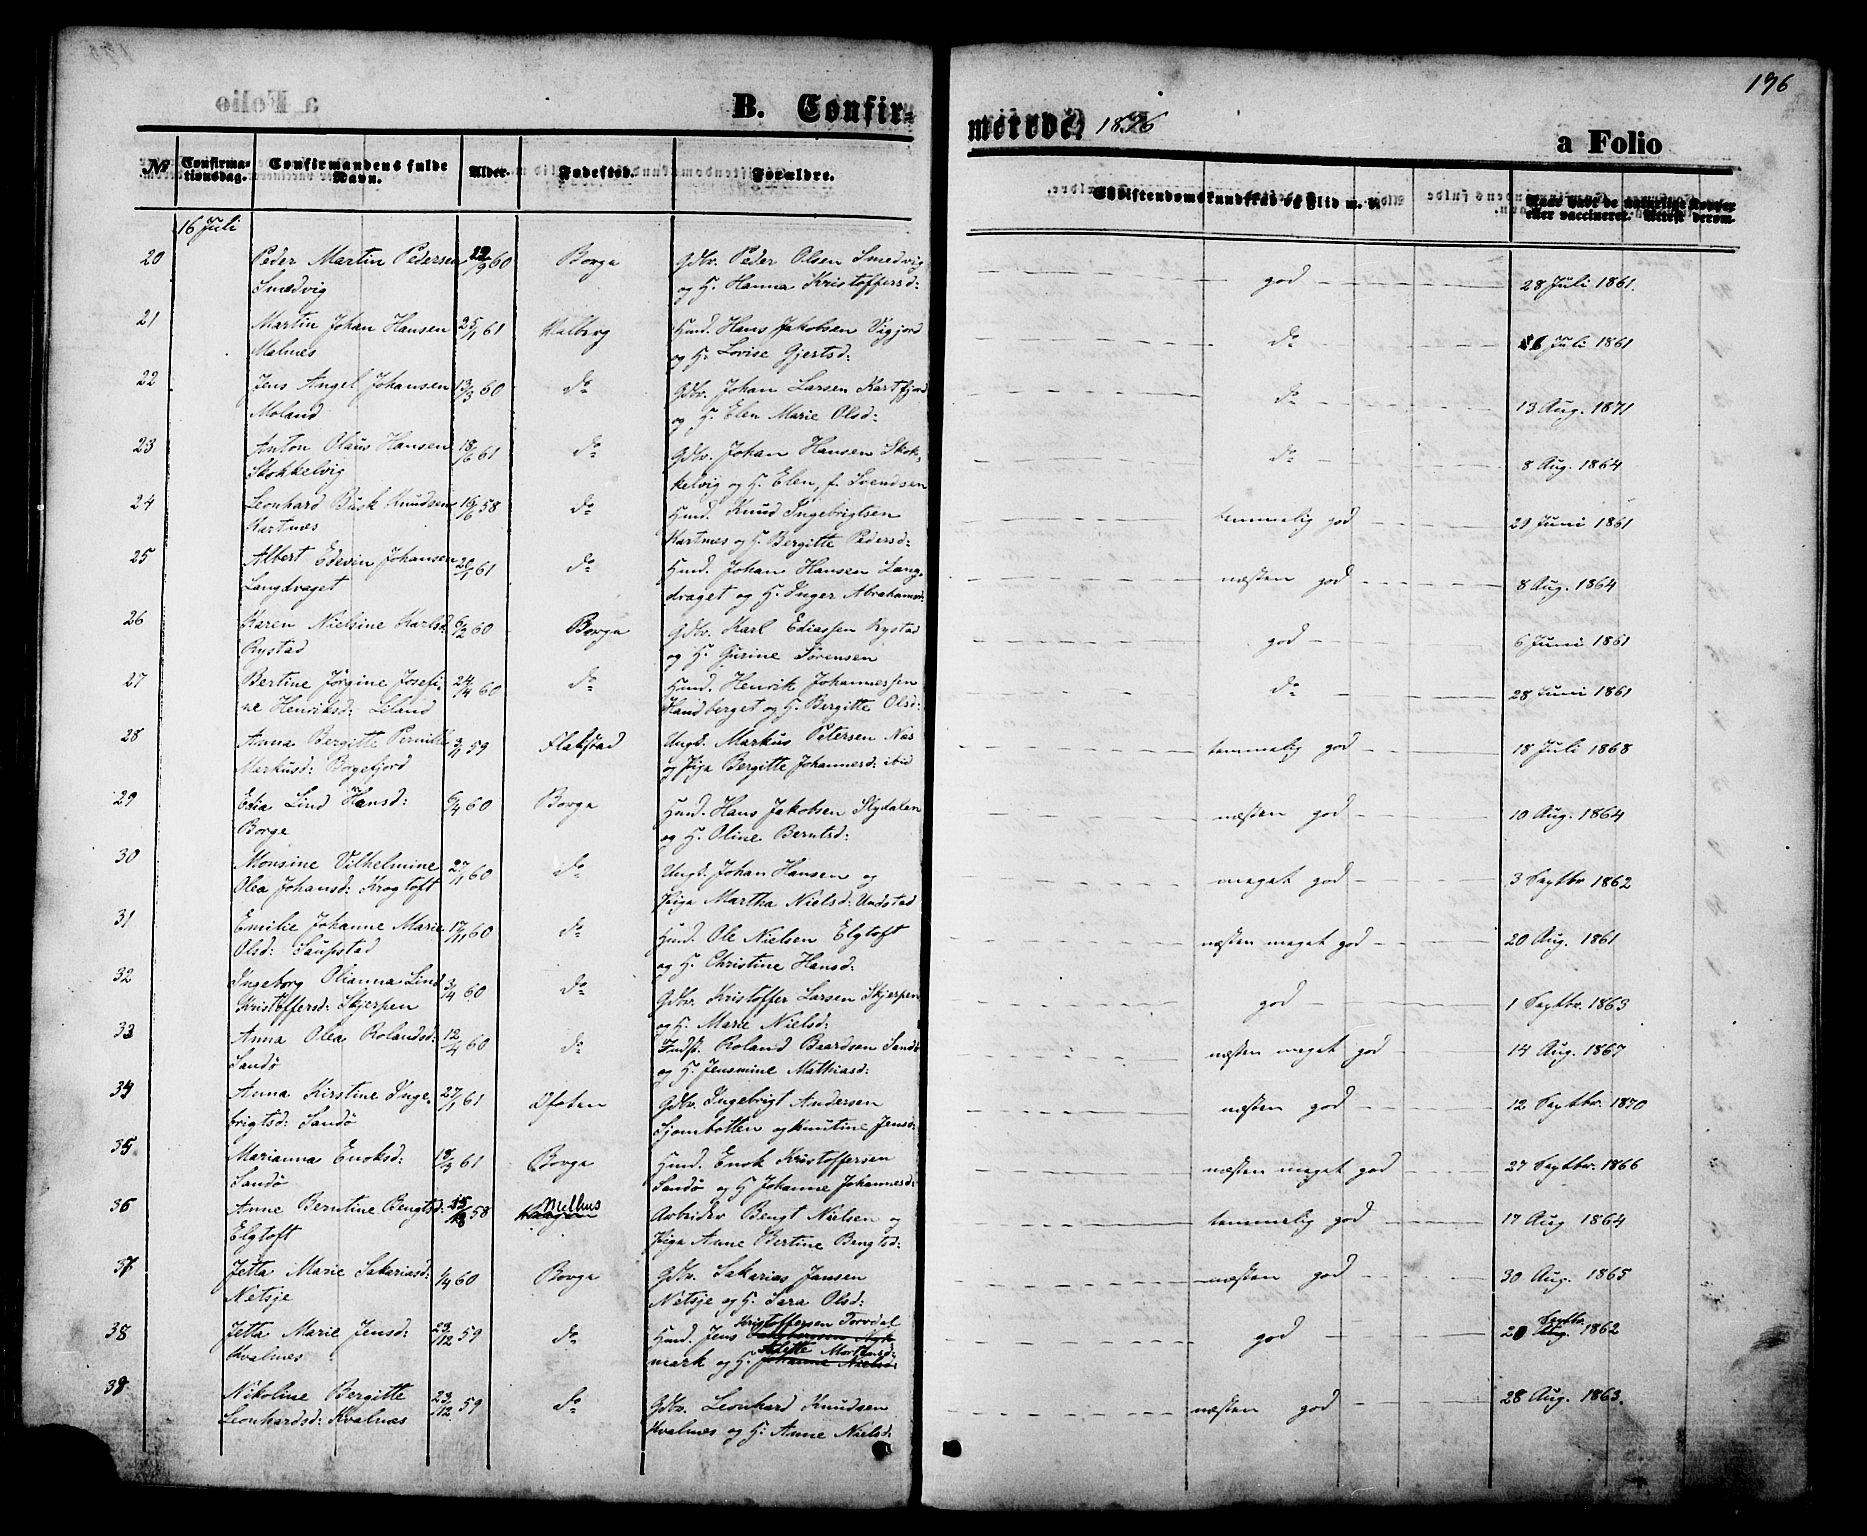 196
B. Confirmerede 1876 a Folio
No Confirmationsdag. Confirmandens fulde Navn. Alder. Fødested. Forældre. Christendomskundskab og Flid m. v. Naar havt de naturlige Kopper eller vaccineret. Attest derom.
16 Juli
20 Peder Martin Pedersen 12/9 60 Borge Gdbr. Peder Olsen Smedvig god 28 Juli 1861.
Smedvig og H. Hanna Kristoffersd:
21 Martin Johan Hansen 25/1 61 Valberg Husmd. Hans Jakobsen Vigjord do Juli 1861
Malnes og H. Lovise Gjertsd:
22 Jens Angel Johansen 13/3 60 do Gdbr. Johan Larsen Kartfjord do 13 Aug. 1871
Moland og H. Elen Marie Olsd:
23 Anton Olaus Hansen 18/6 61 do Gdbr. Johan Hansen Stok- do 8 Aug. 1864
Stokkelvig kelvig og H. Elen, f. Svendsen
24 Leonhard Busk Knudsen 16/6 58 do Husmd. Knud Ingebrigtsen temmelig god 29 Juni 1861
Kartnes Kartnes og H. Bergitte Pedersd:
25 Albert Edevin Johansen 20/1 61 do Husmd. Johan Hansen Lang- næsten god 8 Aug. 1864
Langdraget draget og H. Inger Abrahamsd:
26 Karen Nielsine Karlsd: 6/12 60 Borge Gdbr. Karl Ediassen Rystad god 6 Juni 1861
Rystad og H. Gurine Sørensen
27 Bertine Jørgine Josefi- 24/4 60 do Husmd. Henrik Johannessen do 28 Juni 1861
ne Henriksd: Leland Handberget og H. Bergitte Olsd:
28 Anna Bergitte Pernille 3/11 59 Flakstad Ungk. Markus Petersen Næs temmelig god 18 Juli 1868
Markusd: Borgefjord og Pige Bergitte Johannesd: ibid
29 Edia Lind Hansd: 6/4 60 Borge Husmd. Hans Jakobsen Slydalen næsten god 10 Aug. 1864
Borge og H. Oline Berntsd:
30 Monsine Vilhelmine 27/11 60 do Ungk. Johan Hansen og meget god 3 Septbr 1862
Olea Johansd: Krogtoft Pige Martha Nielsd: Undstad
31 Emilie Johanne Marie 17/11 60 do Husmd. Ole Nielsen Elgtoft næsten meget god 20 Aug. 1861
Olsd: Saupstad og H. Christine Hansd:
32 Ingeborg Olianna Lind 3/14 60 do Gdbr. Kristoffer Larsen Skjerpen god 1 Septbr. 1863
Kristoffersd: Skjerpen og H. Marie Nielsd:
33 Anna Olea Rolandsd: 12/4 60 do Indst. Roland Baardsen Sandø næsten meget god 14 Aug. 1867
Sandö og H. Jensmine Mathiasd:
34 Anna Kirstine Inge- 27/1 61 Ofoten Gdbr. Ingebrigt Andersen næsten god 12 Septbr. 1870
brigtsd: Sandö Sjombotten og Knutine Jensd:
35 Marianna Enoksd: 18/3 61 Borge Husmd. Enok Kristoffersen næsten meget god 27 Septbr. 1866
Sandö Sandö og H. Johanne Johannesd:
36 Anne Berntine Bengtsd: 58 Melhus Arbeider Bengt Nielsen og temmelig god 17 Aug 1864
Elgtoft Pige Anne Bertine Bengtsd:
37 Jetta Marie Sakariasd: 1/4 60 Borge Gdbr. Sakarias Jansen næsten god 30 Aug. 1865
Netsje Netsje og H. Sara Olsd:
38 Jetta Marie Jensd: 23/12 59 do Husmd. Jens Kristoffersen Torvdal god 20 Septbr. 1862
Kvalnes mark og H. Adette Mortensd:
38 Nikoline Bergitte 23/12 59 do Gdbr. Leonhard Knudsen næsten god 28 Aug. 1863.
Leonhardsd: Kvalnæs Kvalnæs og H. Anne Nielsd: